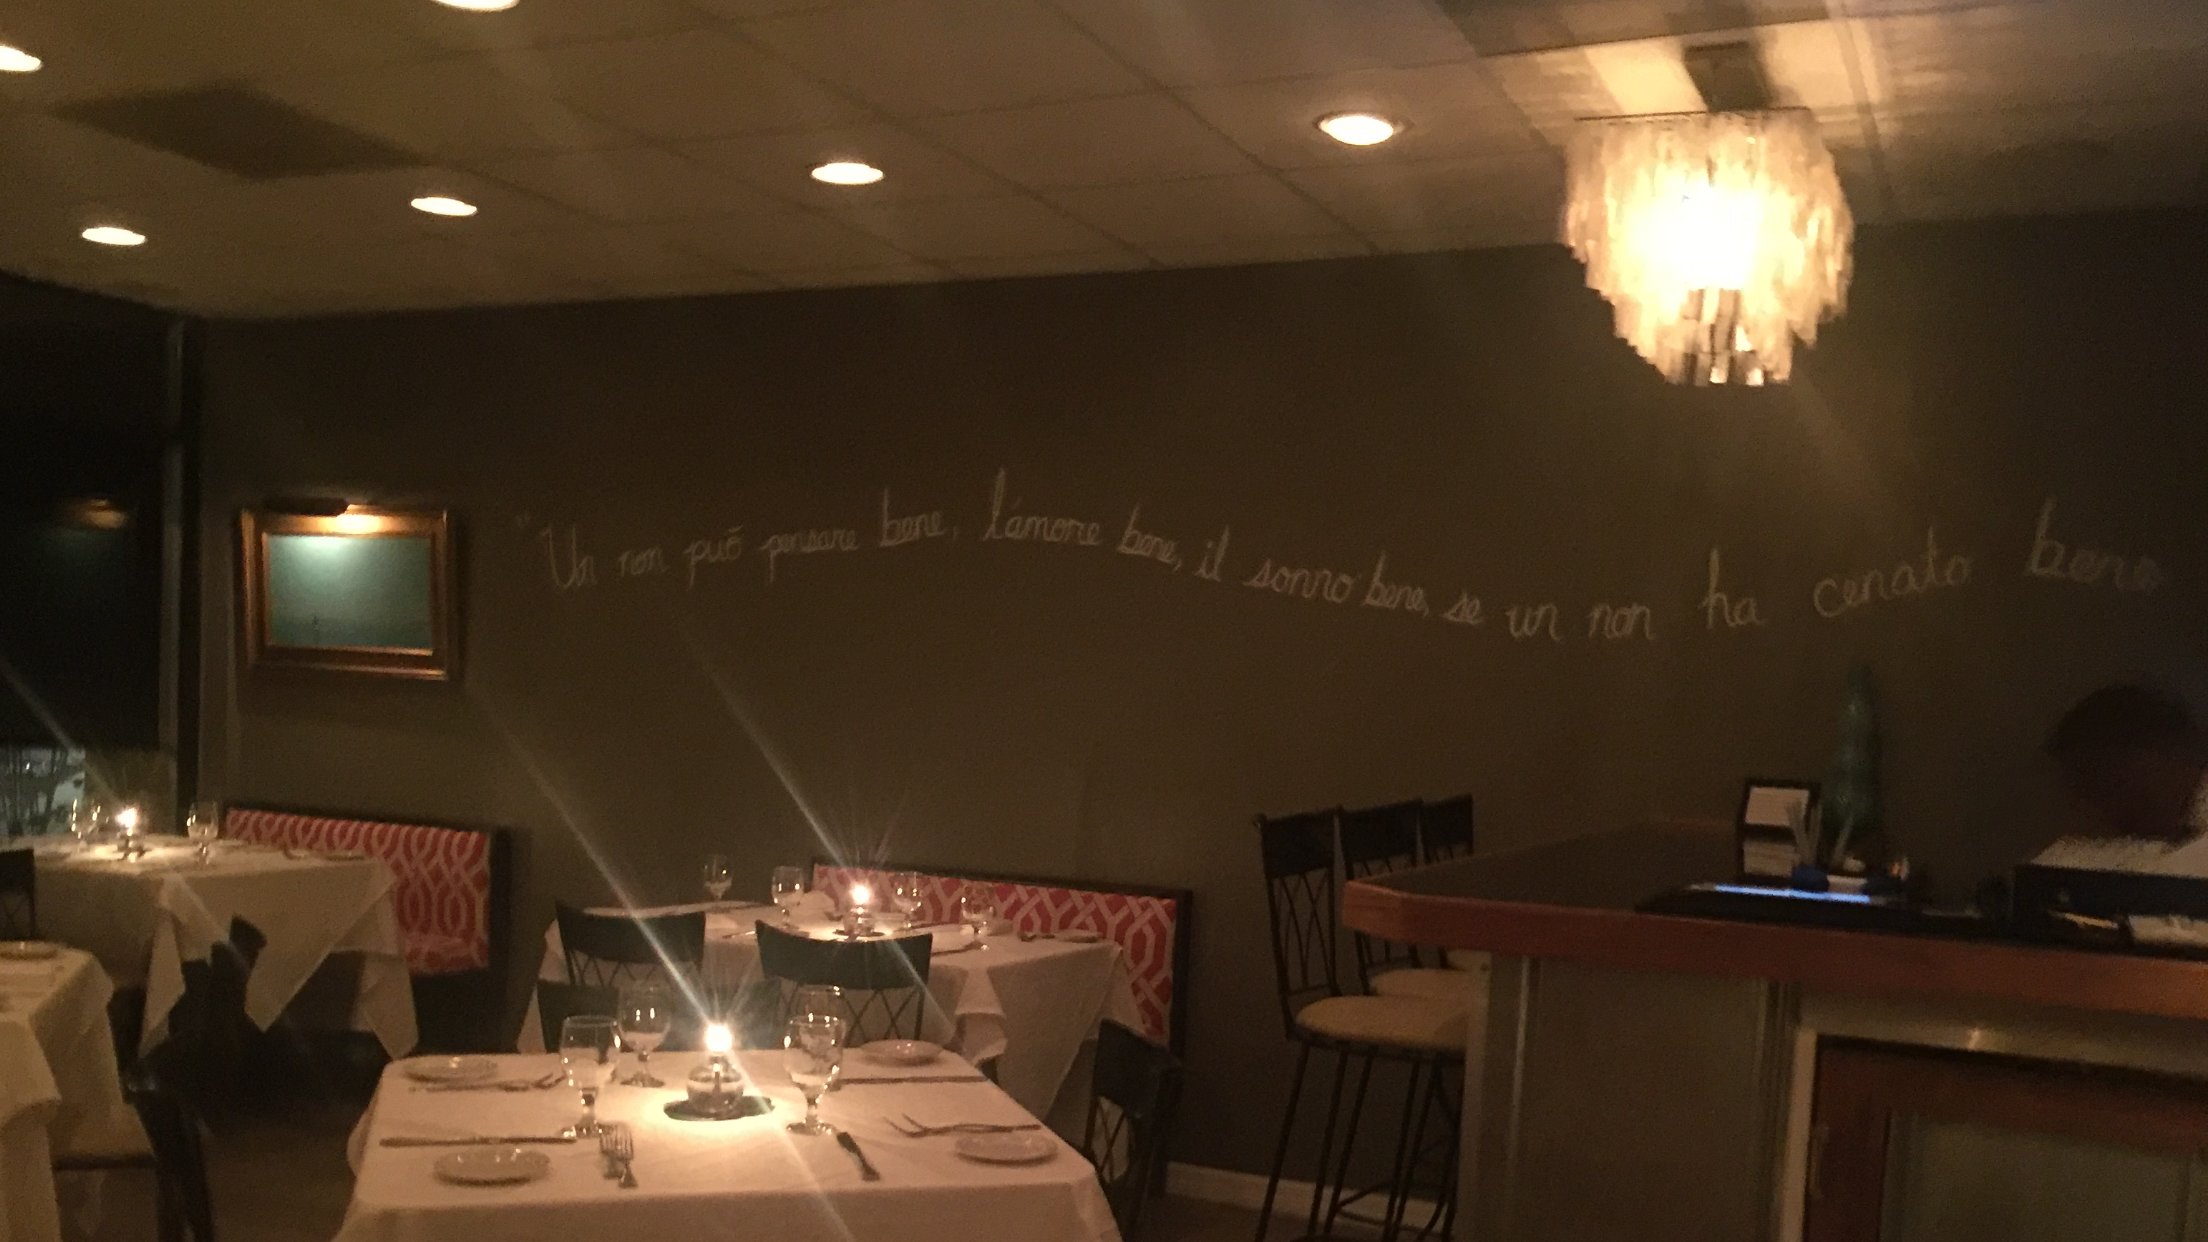 "Un non puó pensare bene, l'amore bene, il sonno bene, se un non ha cenato bene